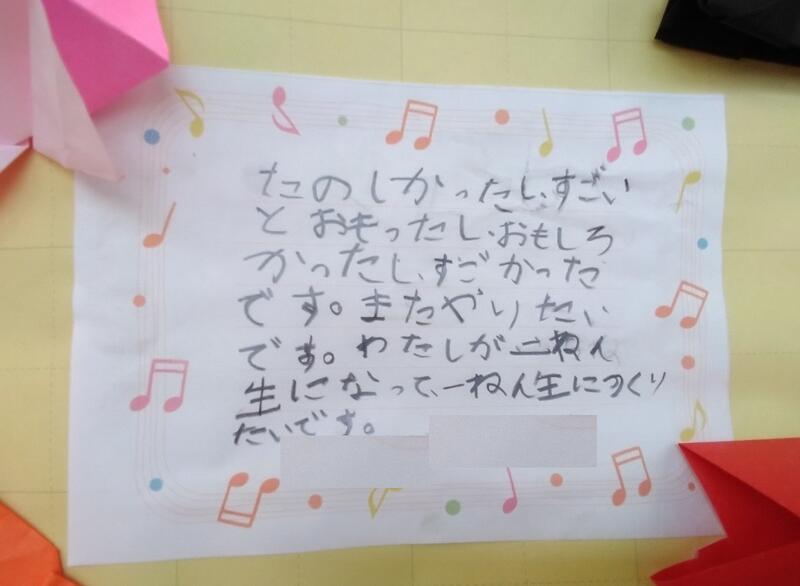 たのしかったし、すごい
とおもったし、おもしろ
かったし、すごかった
です。またやりたい
です。わたしが二ねん
生になって、一ねん生につくり
たいです。